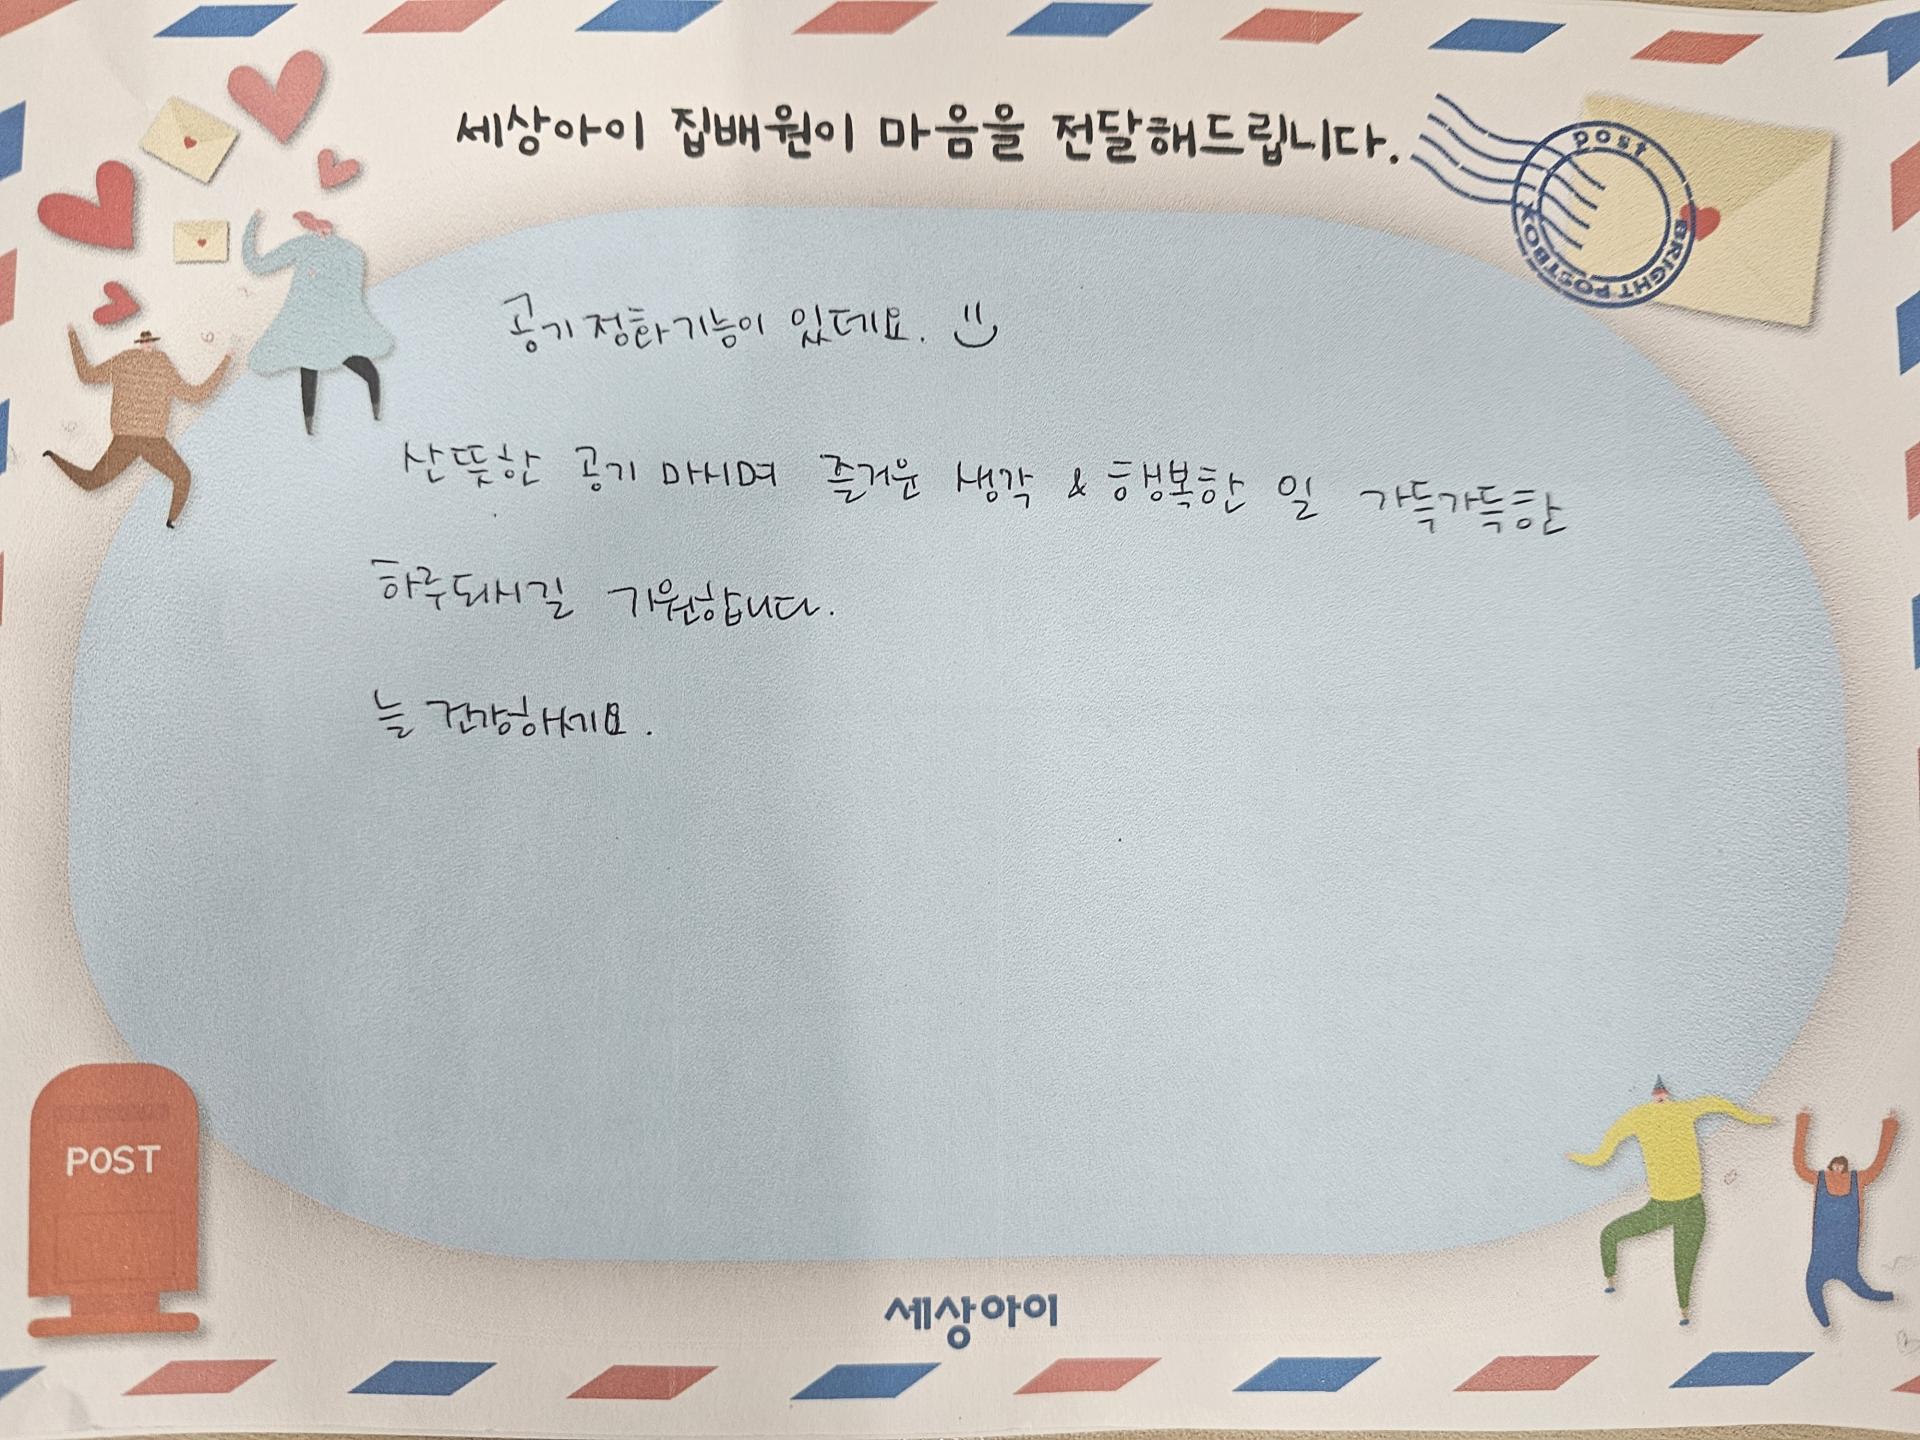 세상아이 집배원이 마음을 전달해드립니다.
post
BRIGHT POSTBOX
공기정화기능이 있데요.
산뜻한 공기 마시며 즐거운 생각 & 행복한 일 가득가득한
하루되시길 기원합니다.
늘 건강하세요.
POST
세상아이